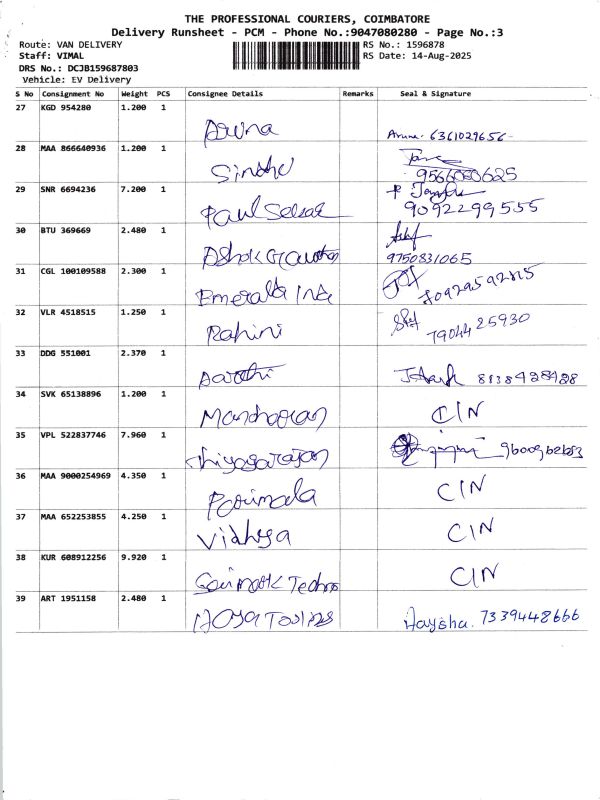 THE PROFESSIONAL COURIERS, COIMBATORE
Delivery Runsheet - PCM - Phone No.:9047080280 - Page No.:3
Route: VAN DELIVERY RS No.: 1596878
Staff: VIMAL RS Date: 14-Aug-2025
DRS No.: DCJB159687803
Vehicle: EV Delivery
S No Consignment No Weight PCS Consignee Details Remarks Seal & Signature
27 KGD 954280 1.200 1
Aruna Aruna 6361029656
28 MAA 866640936 1.200 1
Sindhu
29 SNR 6694236 7.200 1
Paul Selvar 9092299555
30 BTU 369669 2.480 1
Ashok 9750831065
31 CGL 100109588 2.300 1
Emerald
32 VLR 4518515 1.250 1
Rahini 7904425930
33 DDG 551001 2.370 1
Aarthi
34 SVK 65138896 1.200 1
CIN
35 VPL 522837746 7.960 1
Thiyagarajan
36 MAA 9000254969 4.350 1
Parimala CIN
37 MAA 652253855 4.250 1
Vidhya CIN
38 KUR 608912256 9.920 1
Techno CIN
39 ART 1951158 2.480 1
Haysha. 7339448666